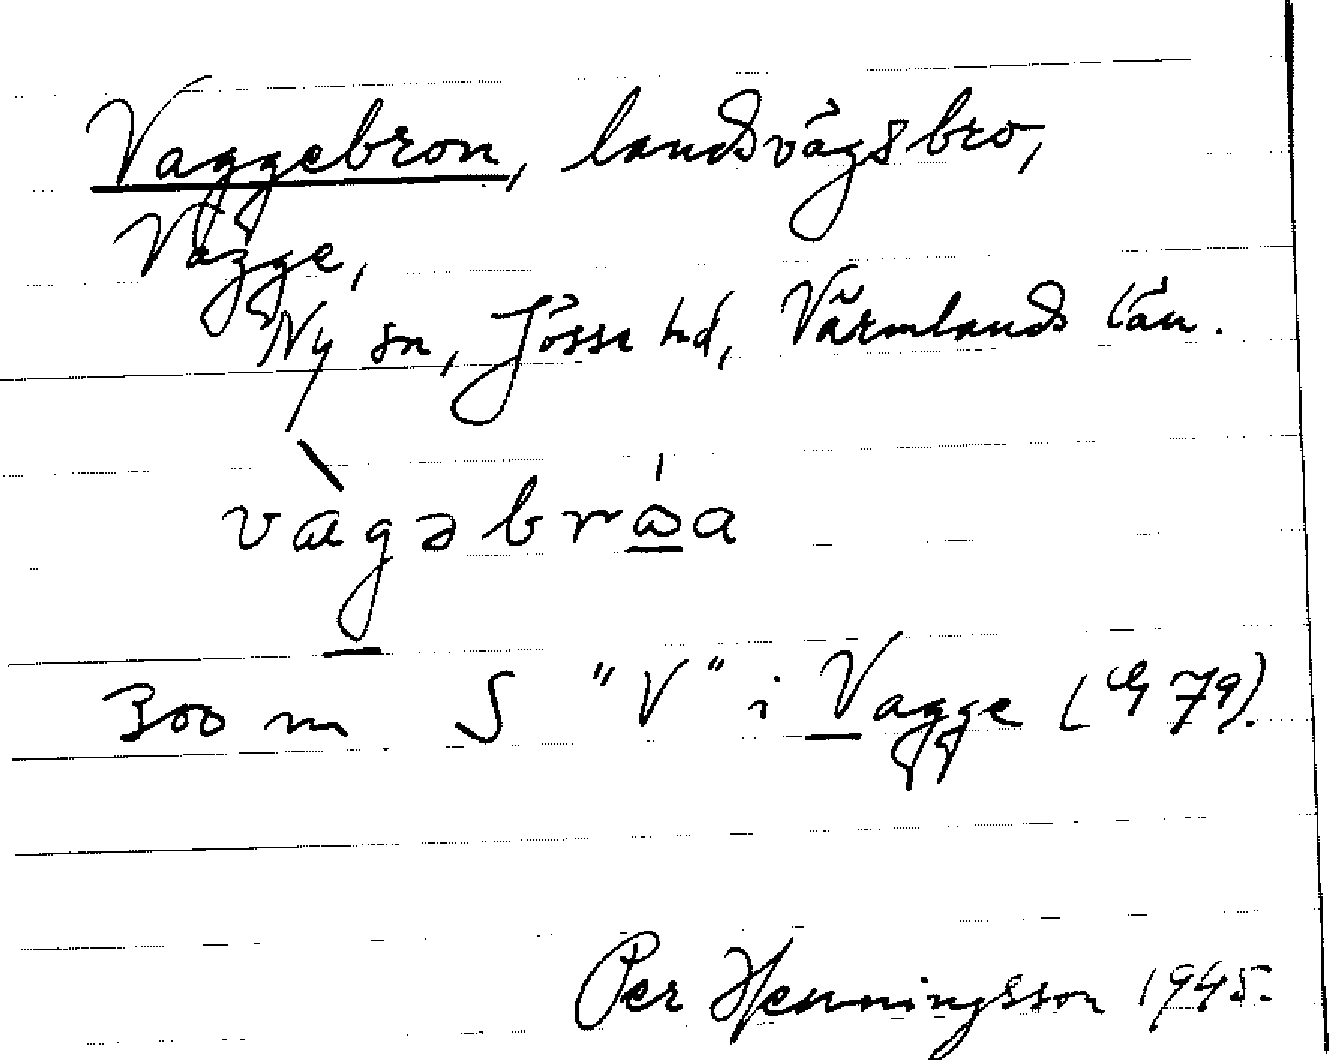 Vaggebron, landsvägsbro,
Vagge,
Ny sn, Jösse hd, Värmlands län.
300 m S "V" i Vagge (G 79).
Per Henningsson 1945.